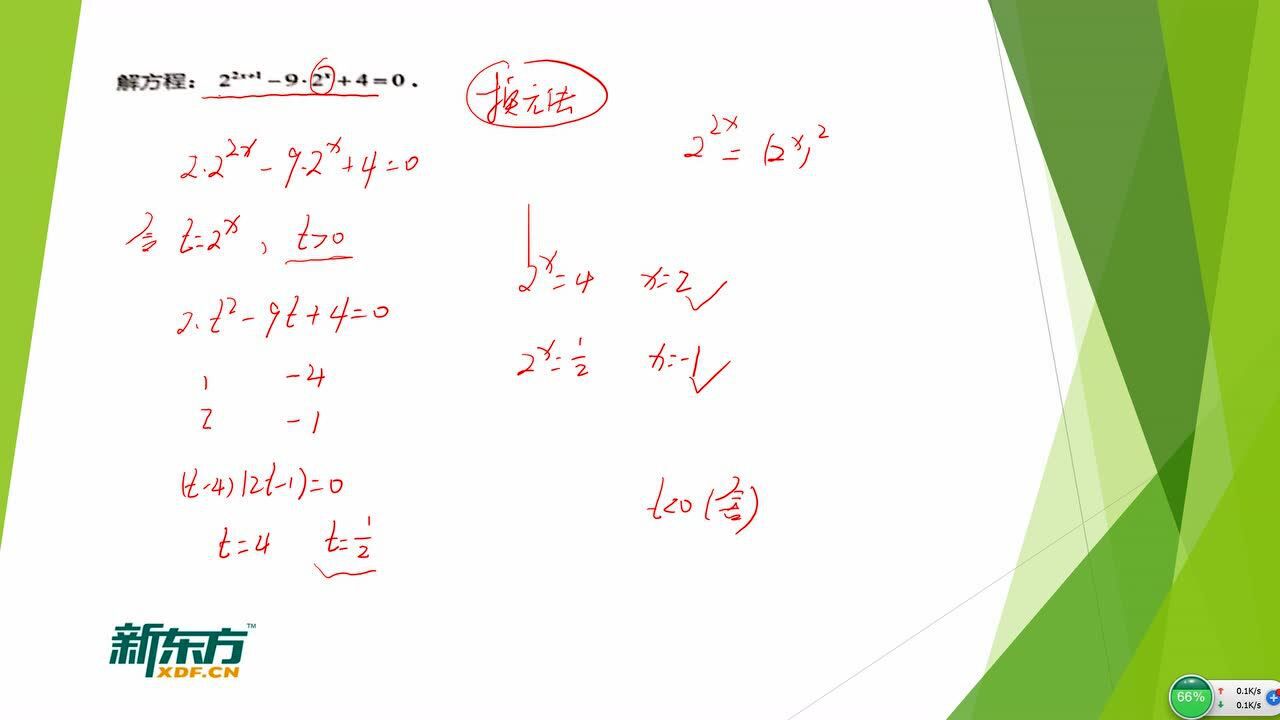 解方程： 2^{2x+1} − 9·2^x + 4 = 0 .
换元法
2·2^{2x} − 9·2^x + 4 = 0
2^{2x} = (2^x)^2
令 t=2^x , t>0
2·t^2 − 9t + 4 = 0
1 −4
2 −1
(t−4)(2t−1)=0
t=4 t=1/2
2^x=4 x=2 ✓
2^x=1/2 x=−1 ✓
t<0 (舍)
新东方™
XDF.CN
66%
0.1K/s
0.1K/s